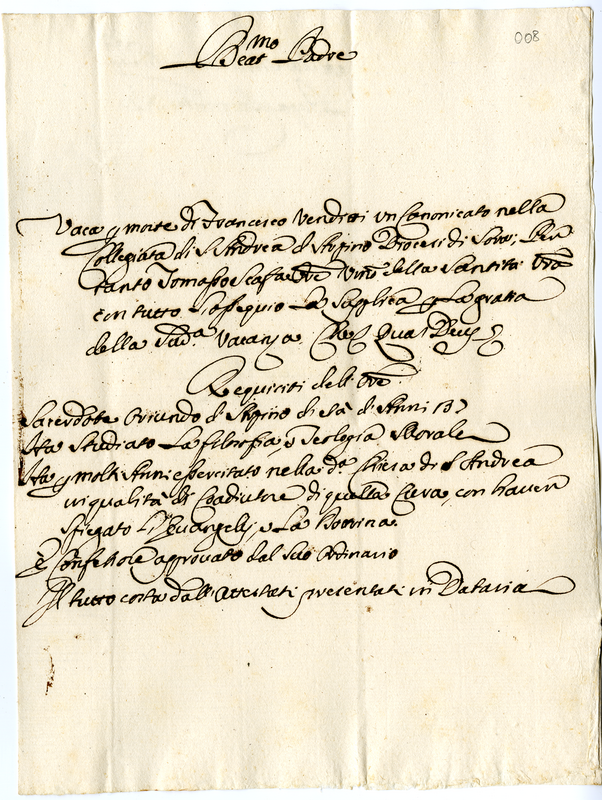 008
Beat.mo Padre
Vaca p morte di Francesco Venditti un Canonicato nella
Collegiata di S. Andrea d'Arpino Diocesi di Sora; Per
tanto Tomasso Scafa Ore Umo della Santità Vra
con tutto l'ossequio La supplica p La gratia
della sud.a Vacanza Che Quas Deus
Requisiti dell' Ore
Sacerdote Oriundo d'Arpino di età di Anni
Ha studiato La filosofia, e Teologia Morale
Ha p molti Anni esercitato nella d.a Chiesa di S. Andrea
in qualità di Coadiutore di quella Cura, con haver
spiegato l'Evangelij, e La Dottrina.
È Confessore approvato dal suo Ordinario
Il tutto costa dall' Attestati presentati in Dataria